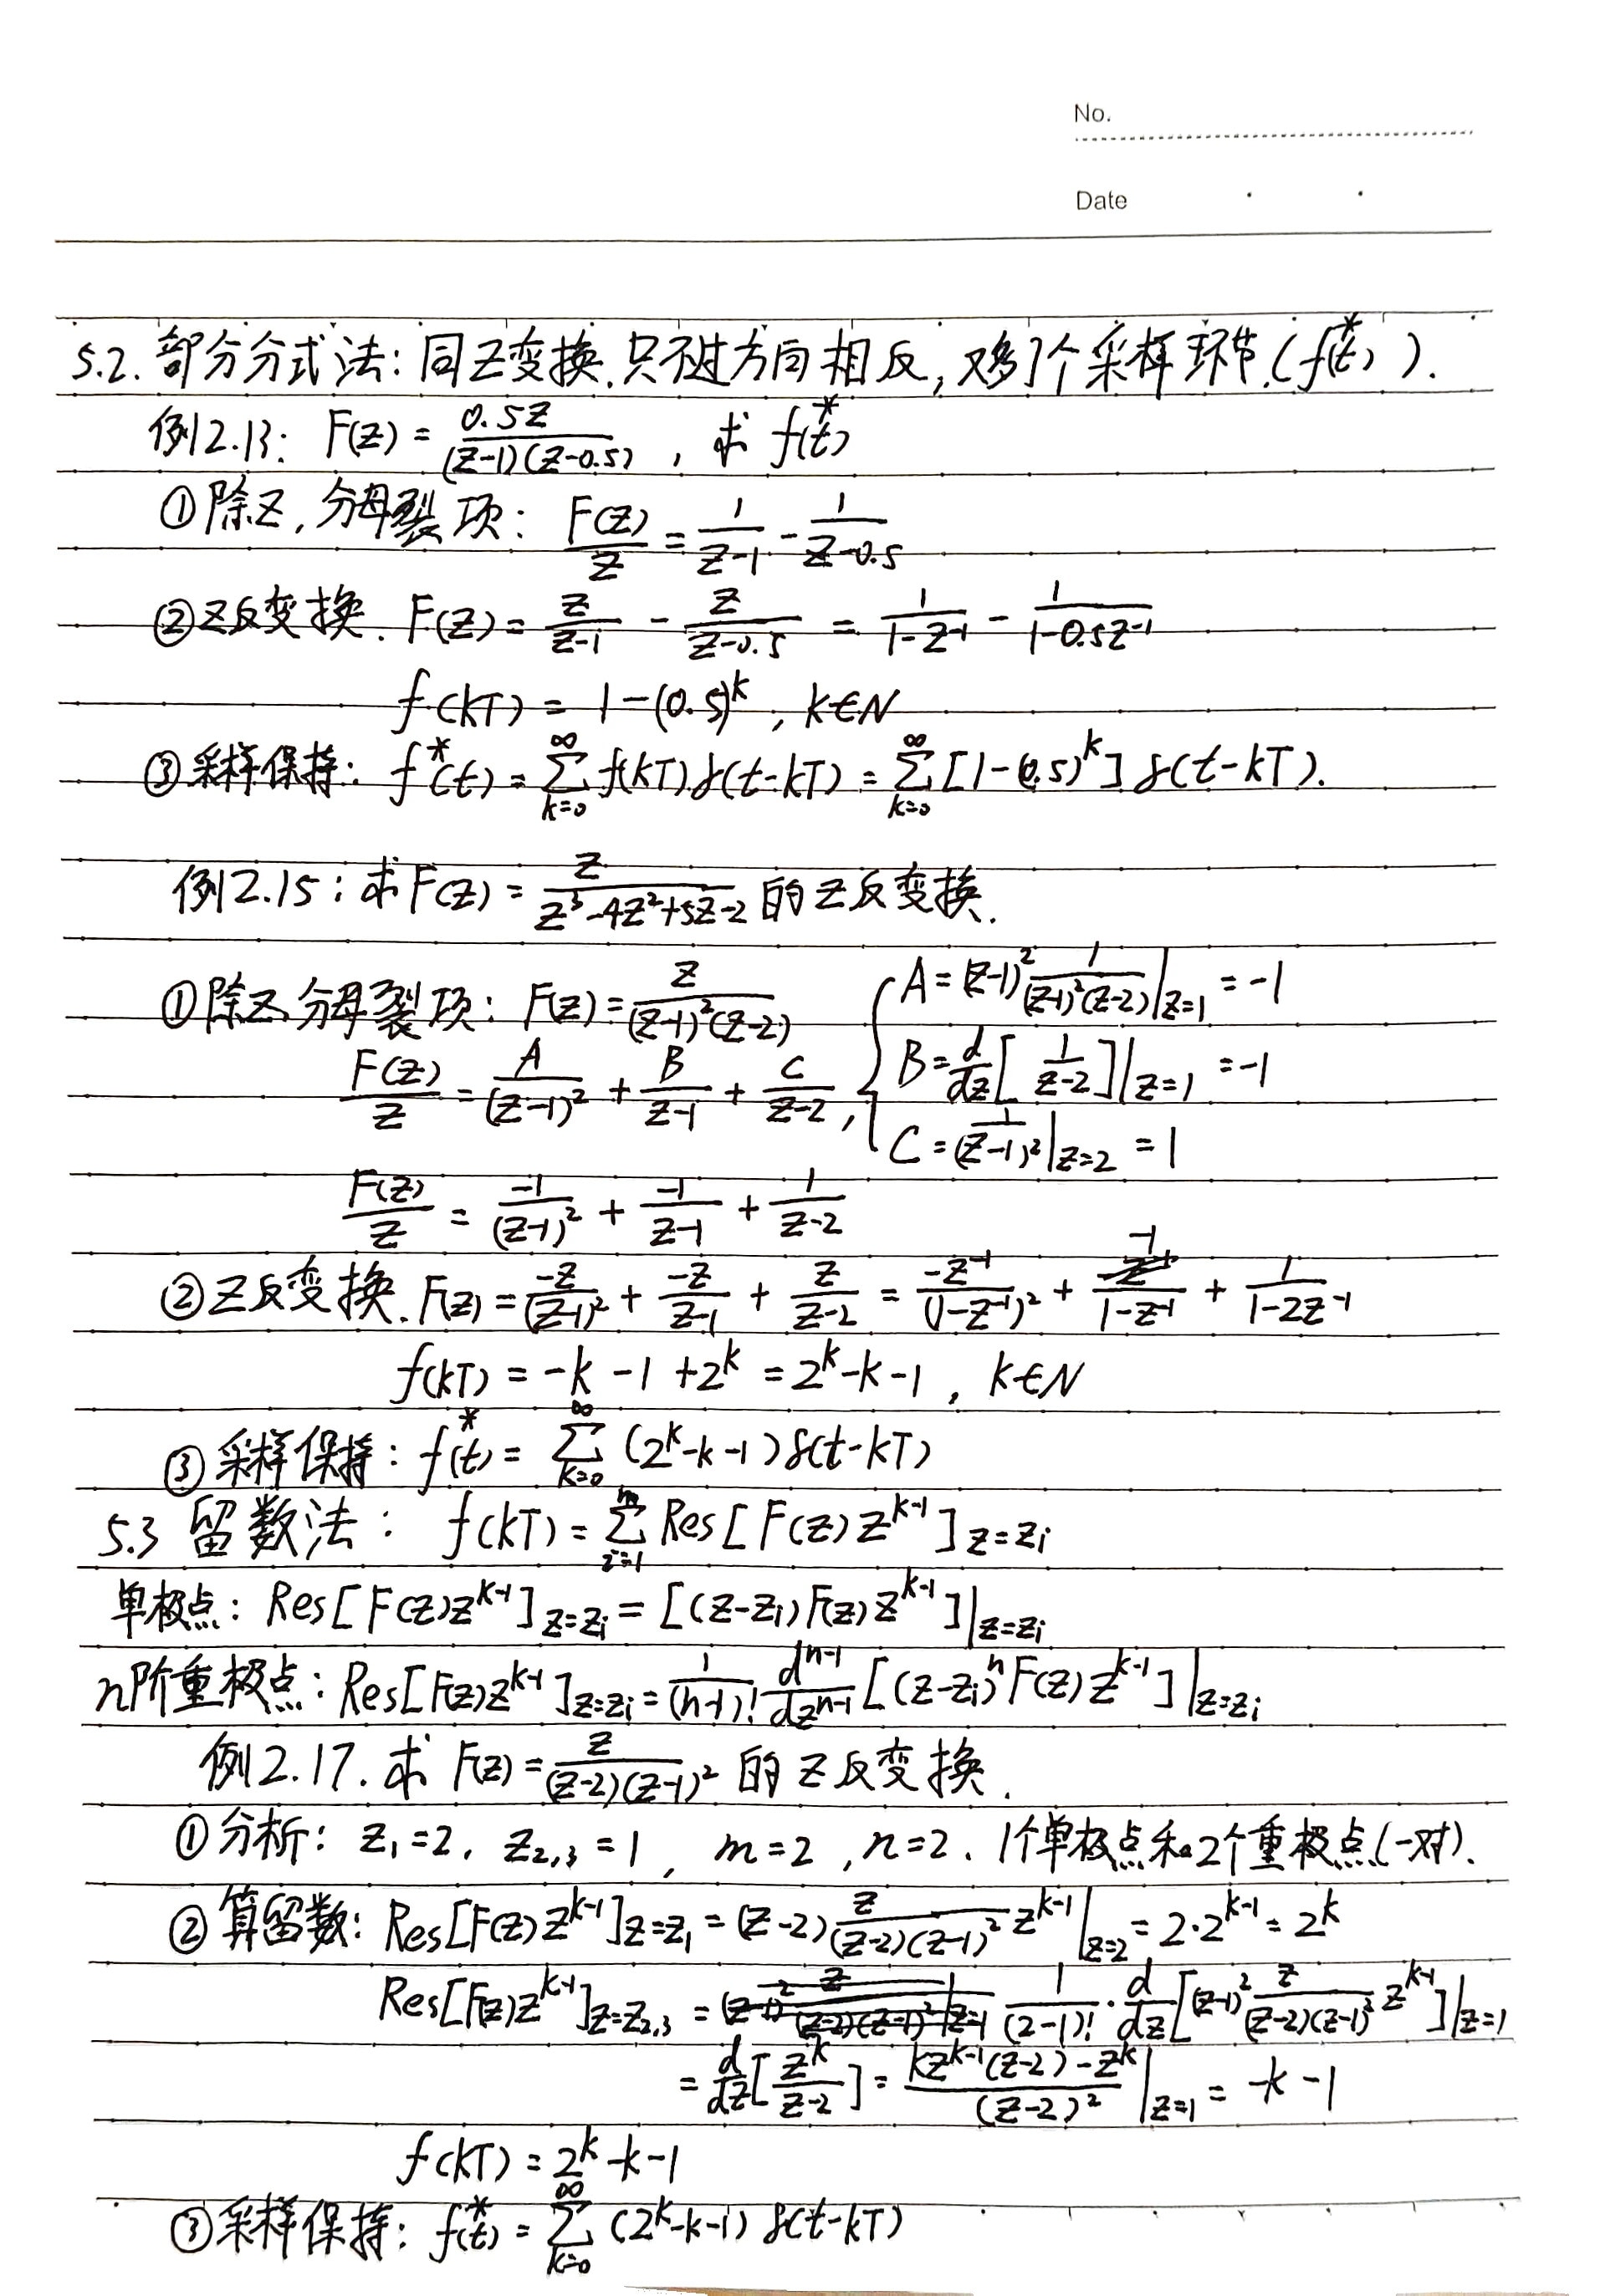 No.
Date
5.2. 部分分式法: 同Z变换, 只不过方向相反, 又多了个采样环节. (f*(t)).
例2.13: F(z) = 0.5z/((z-1)(z-0.5)) , 求 f*(t)
①除z, 分母裂项: F(z)/z = 1/(z-1) - 1/(z-0.5)
②Z反变换. F(z) = z/(z-1) - z/(z-0.5) = 1/(1-z⁻¹) - 1/(1-0.5z⁻¹)
f(kT) = 1-(0.5)^k , k∈N
③采样保持: f*(t) = ∑_{k=0}^{∞} f(kT)δ(t-kT) = ∑_{k=0}^{∞} [1-(0.5)^k] δ(t-kT).
例2.15: 求F(z) = z/(z³-4z²+5z-2) 的Z反变换.
①除z, 分母裂项: F(z) = z/((z-1)²(z-2))
F(z)/z = A/(z-1)² + B/(z-1) + C/(z-2) ,
{ A = (z-1)² 1/((z-1)²(z-2)) |_{z=1} = -1
B = d/dz [ 1/(z-2) ] |_{z=1} = -1
C = 1/(z-1)² |_{z=2} = 1
F(z)/z = -1/(z-1)² + -1/(z-1) + 1/(z-2)
②Z反变换. F(z) = -z/(z-1)² + -z/(z-1) + z/(z-2) = -z⁻¹/(1-z⁻¹)² + -1/(1-z⁻¹) + 1/(1-2z⁻¹)
f(kT) = -k -1 +2^k = 2^k-k-1 , k∈N
③采样保持: f*(t) = ∑_{k=0}^{∞} (2^k-k-1)δ(t-kT)
5.3 留数法: f(kT) = ∑_{i=1}^{m} Res[F(z)z^{k-1}]_{z=z_i}
单极点: Res[F(z)z^{k-1}]_{z=z_i} = [(z-z_i)F(z)z^{k-1}]|_{z=z_i}
n阶重极点: Res[F(z)z^{k-1}]_{z=z_i} = 1/(n-1)! d^{n-1}/dz^{n-1} [(z-z_i)^n F(z)z^{k-1}]|_{z=z_i}
例2.17. 求 F(z) = z/((z-2)(z-1)²) 的Z反变换.
①分析: z₁=2, z₂,₃=1, m=2, n=2. 1个单极点和2个重极点(一对).
②算留数: Res[F(z)z^{k-1}]_{z=z₁} = (z-2) z/((z-2)(z-1)²) z^{k-1} |_{z=2} = 2·2^{k-1} = 2^k
Res[F(z)z^{k-1}]_{z=z₂,₃} = 1/(2-1)! · d/dz [(z-1)² z/((z-2)(z-1)²) z^{k-1}]|_{z=1}
= d/dz [z^k/(z-2)] = (kz^{k-1}(z-2)-z^k)/(z-2)² |_{z=1} = -k-1
f(kT) = 2^k-k-1
③采样保持: f*(t) = ∑_{k=0}^{∞} (2^k-k-1) δ(t-kT)